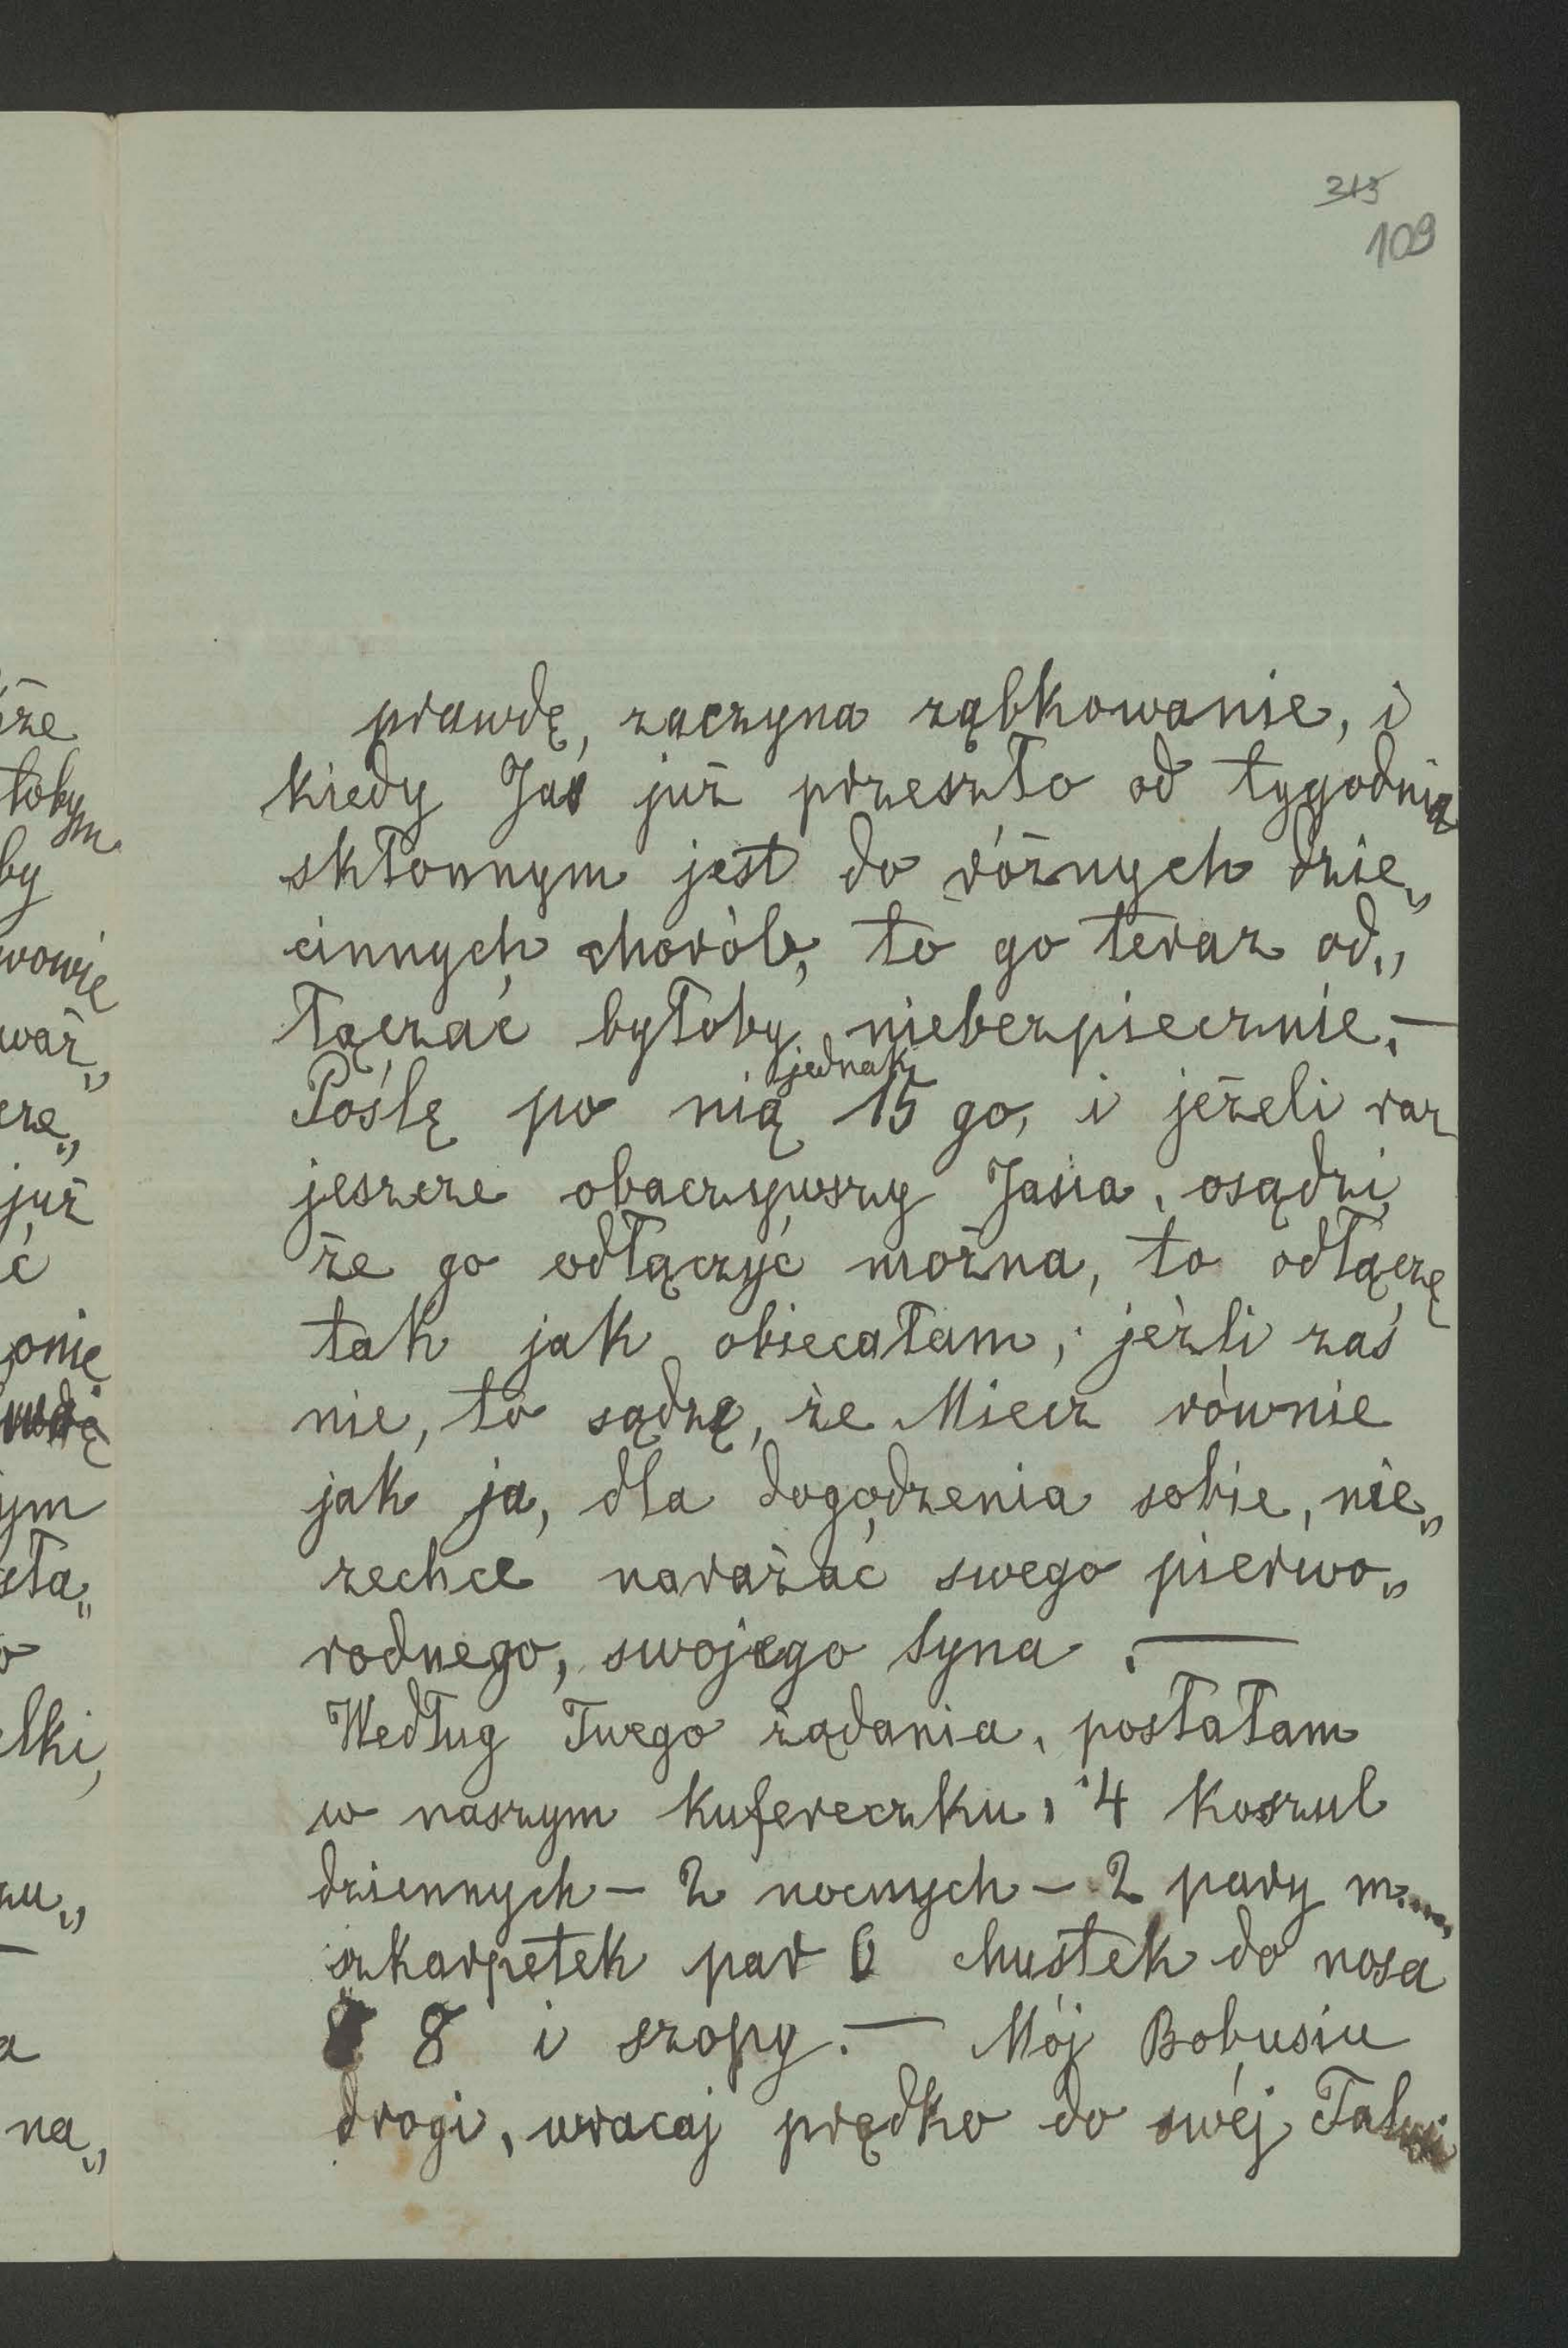 315
109
że
tobym
by
wowie
waż„
cze„
już
ć
onię
ym
sta„
o
elki,
zu„
a
na„
prawdę, zaczyna ząbkowanie, i
kiedy Jaś już przeszło od tygodnia
skłonnym jest do różnych dzie„
cinnych chorób, to go teraz od„
łączać byłoby niebezpiecznie. —
jednak
Poślę po nią 15 go, i jeżeli raz
jeszcze obaczywszy Jasia, osądzi
że go odłączyć można, to odłączę
tak jak obiecałam; jeżli zaś
nie, to sądzę, że Miecz równie
jak ja, dla dogodzenia sobie, nie„
zechce narażać swego pierwo„
rodnego, swojego syna. —
Według Twego żądania, posłałam
w naszym kufereczku, 4 koszul
dziennych – 2 nocnych – 2 pary m.....
szkarpetek par 6 chustek do nosa
8 i szopy. — Mój Bobusiu
drogi, wracaj prędko do swéj